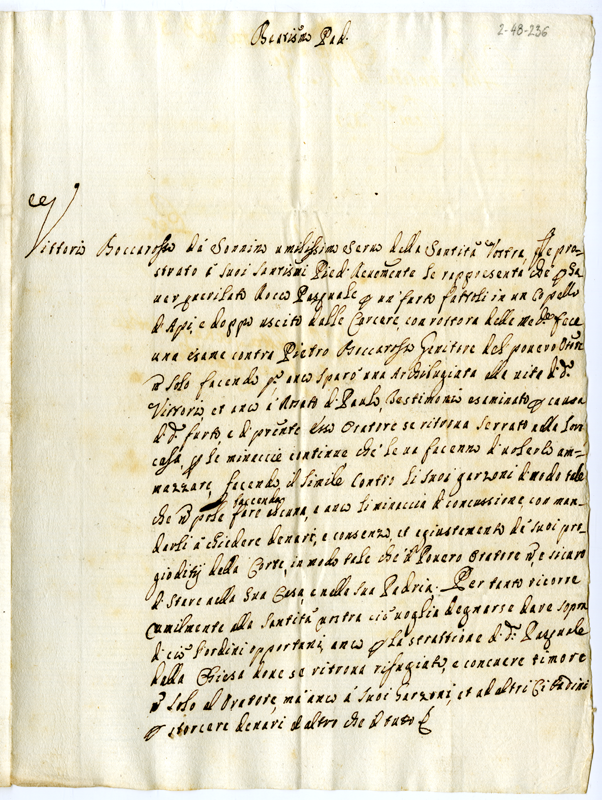 2-48-236
Beatismo Pad.
Vittorio Boccarossa da Sonnino umilissimo servo della Santità Vostra, pro=
strato a suoi Santismi Piedi Reverentemente le rappresenta che
ver querelato Rocco Pasquale un furto fattoli in un Copello
d'Api, e doppo uscito dalle Carcere, con rottora delle mede fece
una esame contra Pietro Boccarossa Genitore del povero
solo facendo anco sparò una Archibugiata alla vita di d.
Vittorio, et anco a di Paulo, Testimonio esaminato causa
di d. furto, e di prnte esso Oratore se ritrova serrato nella
casa, le minaccie continue che le va facenno di volerlo am=
mazzare, facendo il simile contro li suoi garzoni di modo tale
faccenda
che pole fare alcuna, e anco li minaccia di concussione, con man=
darli a chiedere denari, e consenzo, et agiustamento de suoi pre=
gioditij della Corte, in modo tale che d. Povero Oratore è sicuro
di stare nella sua Casa, e nella sua Padria. Per tanto ricorre
umilmente alla Santità vostra cio voglia degnarse dare sopra
di cio l'ordini opportani, anco la strattione di d. Pasquale
dalla Chiesa dove se ritrova rifugiato, e timore
solo al Oratore, ma anco a suoi Garzoni, et ad altri Cittadini
storcere denari ed altro che il tutto